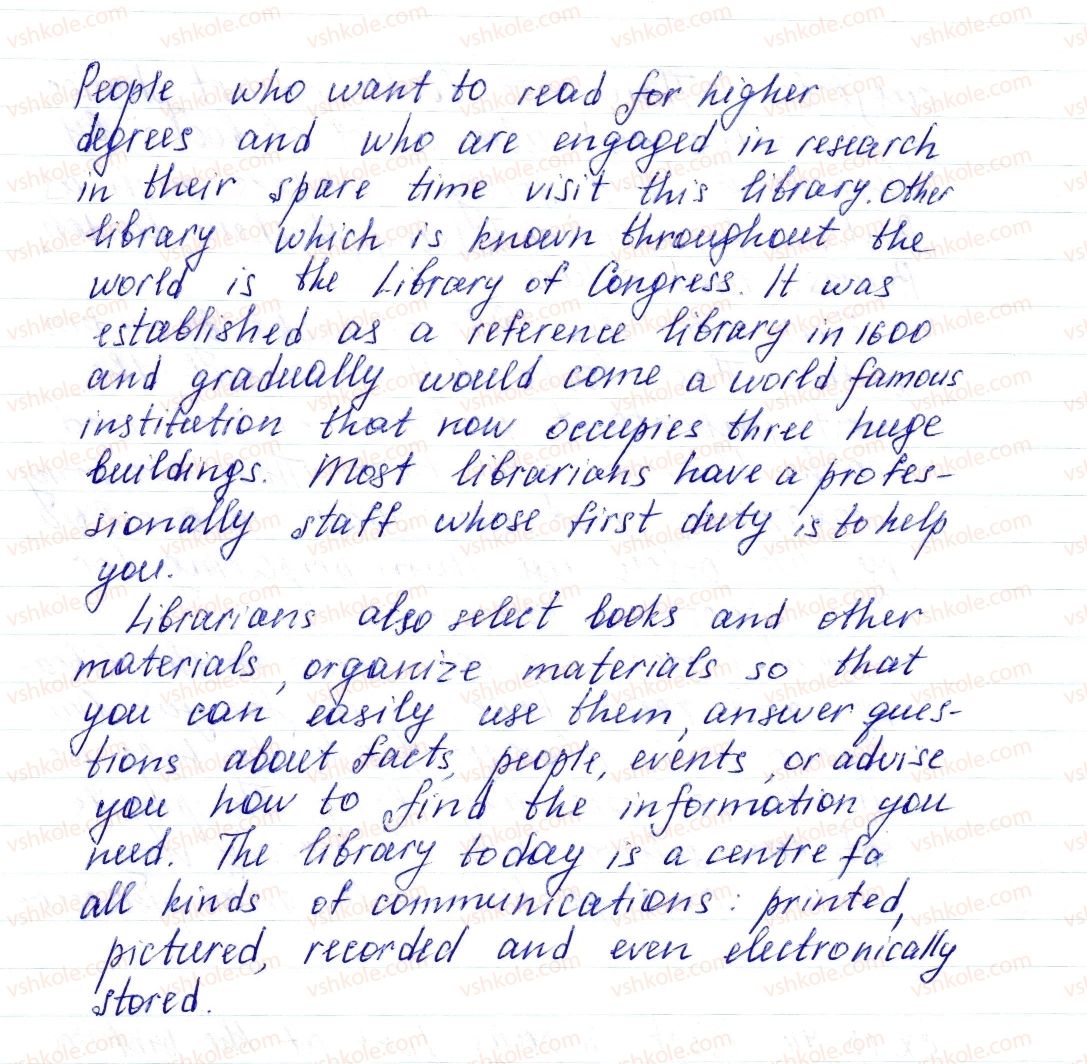 People who want to read for higher
degrees and who are engaged in research
in their spare time visit this library. Other
library which is known throughout the
world is the Library of Congress. It was
established as a reference library in 1600
and gradually would come a world famous
institution that now occupies three huge
buildings. Most librarians have a profes-
sionally staff whose first duty is to help
you.
Librarians also select books and other
materials, organize materials so that
you can easily use them, answer ques-
tions about facts, people, events, or advise
you how to find the information you
need. The library today is a centre fo
all kinds of communications: printed,
pictured, recorded and even electronically
stored.